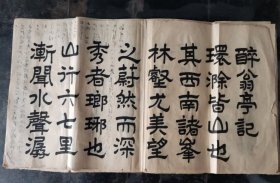 醉翁亭記
環滁皆山也
其西南諸峯
林壑尤美望
之蔚然而深
秀者瑯琊也
山行六七里
漸聞水聲潺